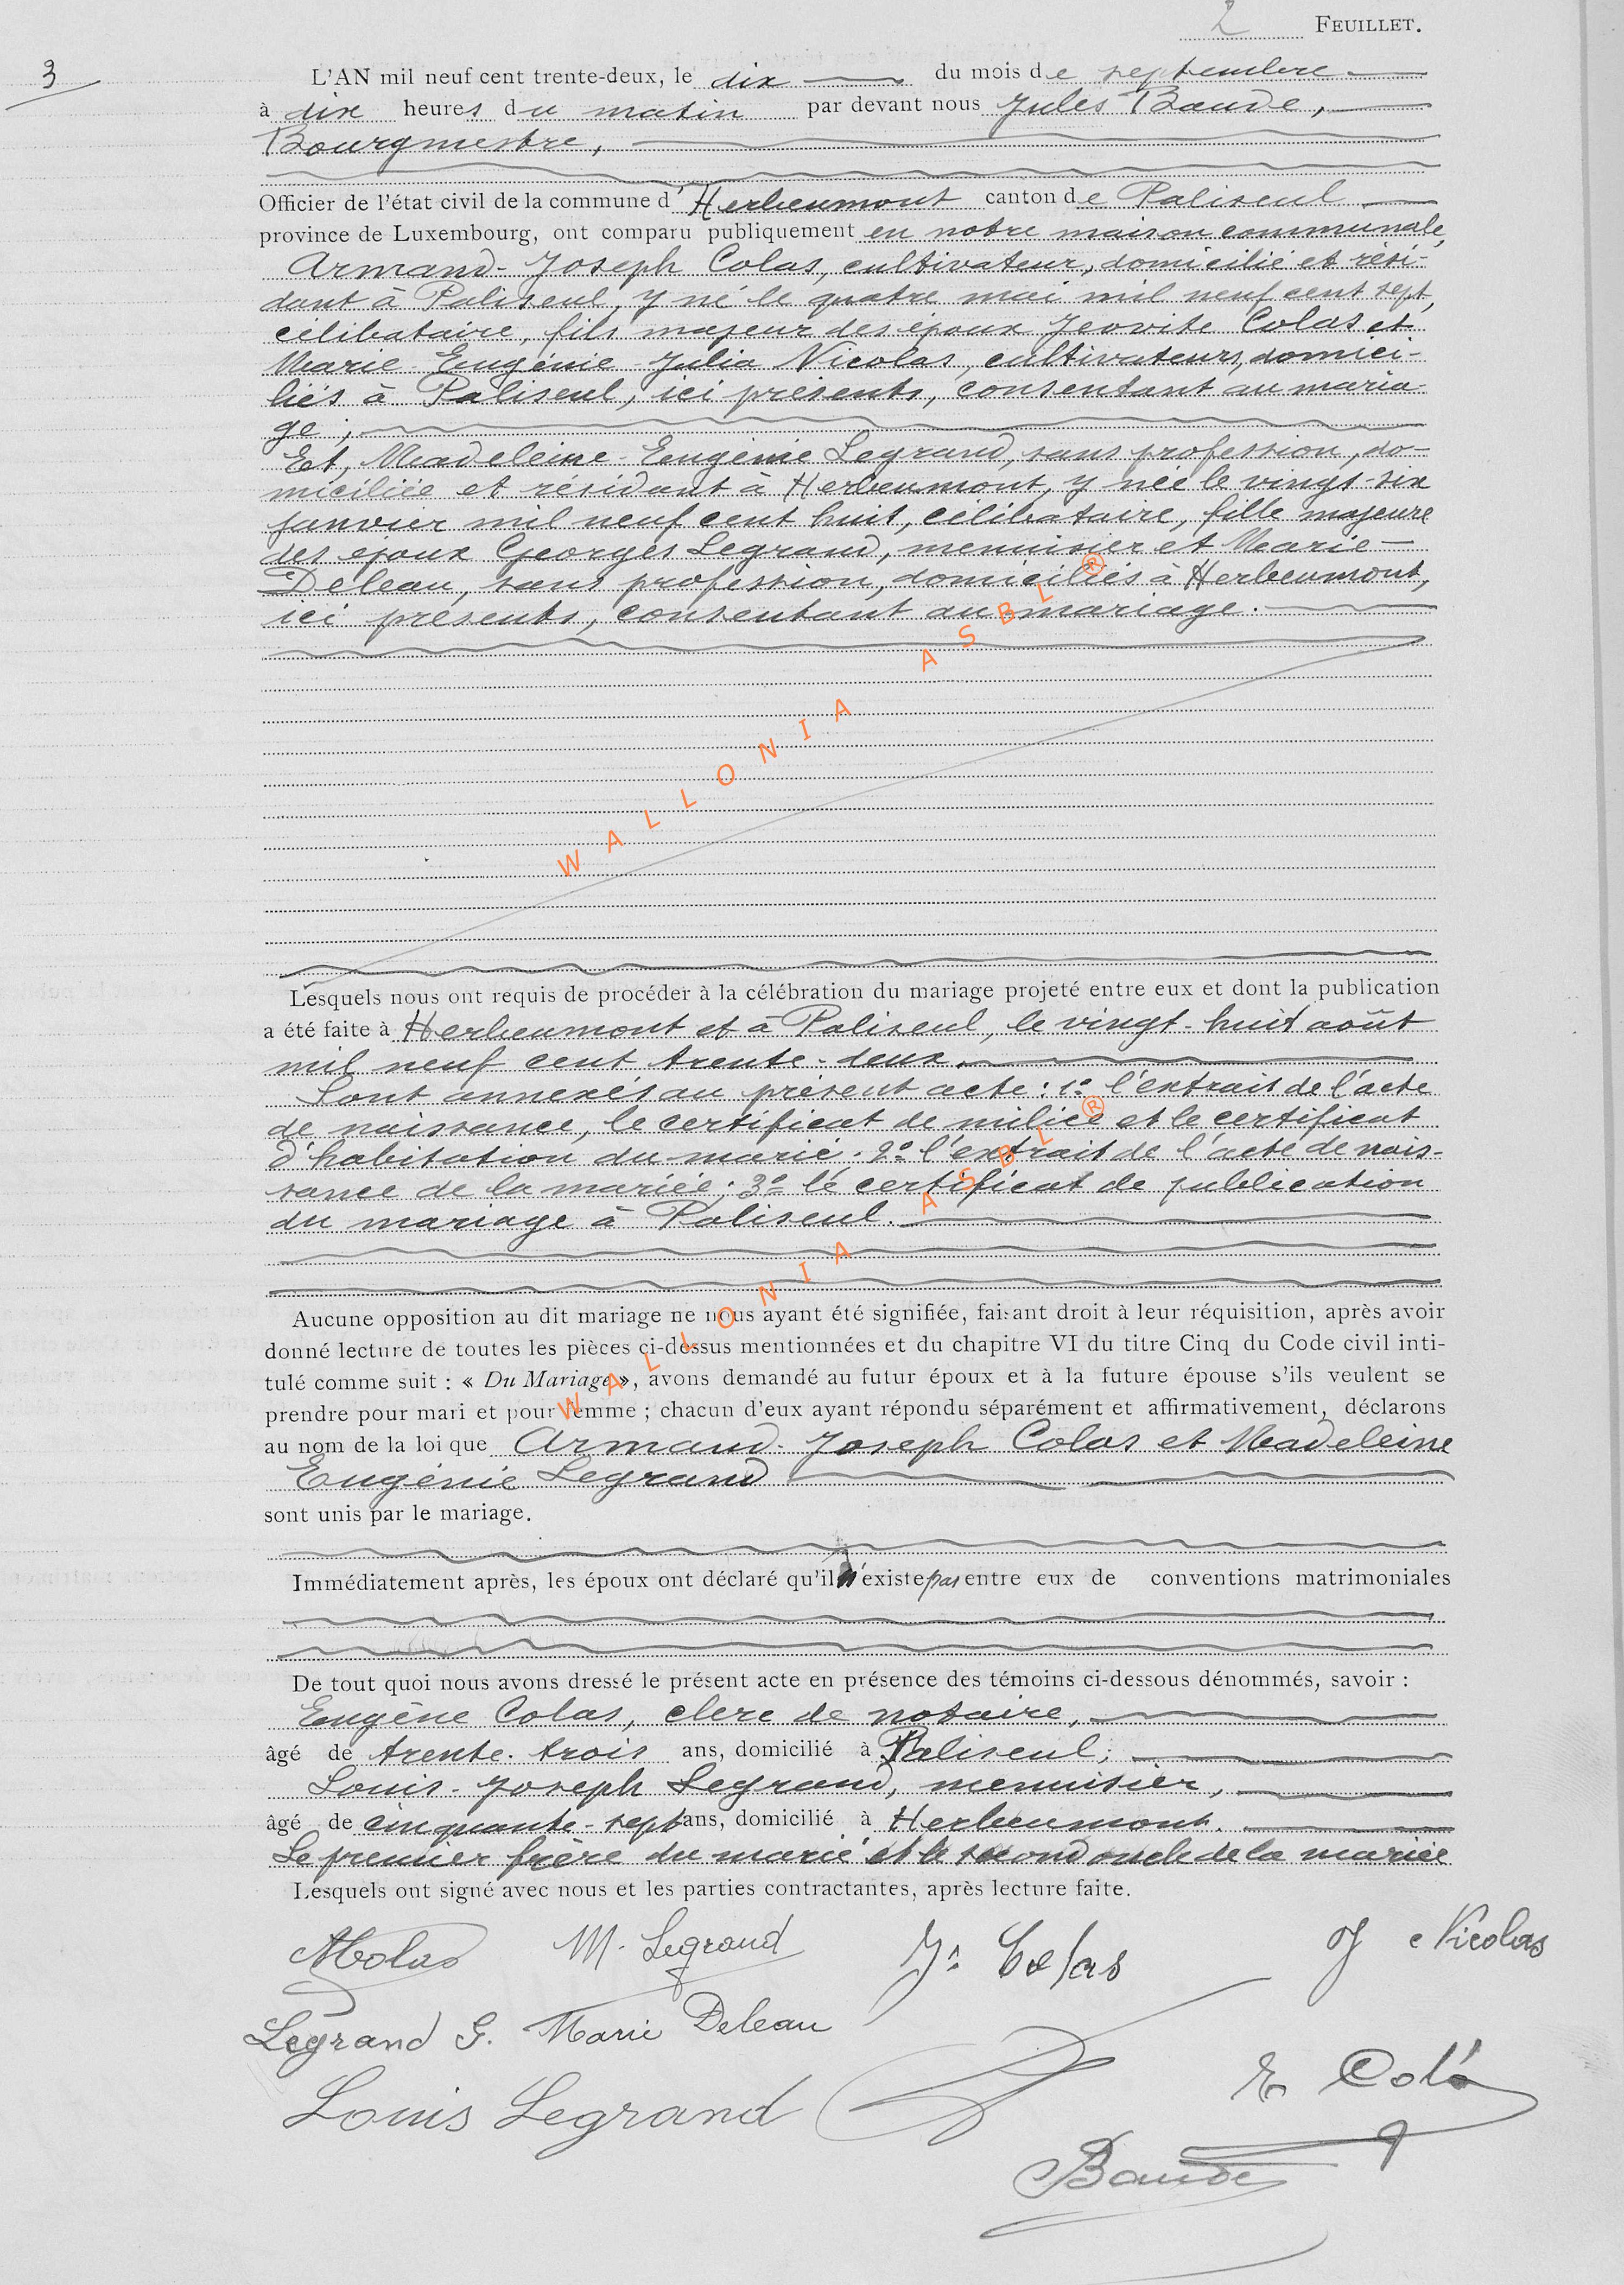 2 FEUILLET.
3
L'AN mil neuf cent trente-deux, le dix du mois de septembre
à dix heures du matin par devant nous Jules Baude,
Bourgmestre,
Officier de l'état civil de la commune d'Herbeumont canton de Paliseul
province de Luxembourg, ont comparu publiquement en notre maison communale,
Armand-Joseph Colas, cultivateur, domicilié et rési-
dant à Paliseul, y né le quatre mai mil neuf cent sept,
célibataire, fils majeur des époux Colas et
Marie-Eugénie-Julia Nicolas, cultivateurs, domici-
liés à Paliseul, ici présents, consentant au maria-
ge;
Et, Madeleine-Eugénie Legrand, sans profession, do-
miciliée et résidant à Herbeumont, y née le vingt-six
janvier mil neuf cent huit, célibataire, fille majeure
des époux Georges Legrand, menuisier et Marie
Deleau, sans profession, domiciliés à Herbeumont,
ici présents, consentant au mariage.
WALLONIA ASBL ®
Lesquels nous ont requis de procéder à la célébration du mariage projeté entre eux et dont la publication
a été faite à Herbeumont et à Paliseul, le vingt-huit août
mil neuf cent trente-deux.
Sont annexés au présent acte: 1° l'extrait de l'acte
de naissance, le certificat de milice et le certificat
d'habitation du marié. 2° l'extrait de l'acte de nais-
sance de la mariée; 3° le certificat de publication
du mariage à Paliseul.
WALLONIA ASBL ®
Aucune opposition au dit mariage ne nous ayant été signifiée, faisant droit à leur réquisition, après avoir
donné lecture de toutes les pièces ci-dessus mentionnées et du chapitre VI du titre Cinq du Code civil inti-
tulé comme suit : « Du Mariage », avons demandé au futur époux et à la future épouse s'ils veulent se
prendre pour mari et pour femme ; chacun d'eux ayant répondu séparément et affirmativement, déclarons
au nom de la loi que Armand-Joseph Colas et Madeleine
Eugénie Legrand
sont unis par le mariage.
Immédiatement après, les époux ont déclaré qu'il n'existe pas entre eux de conventions matrimoniales
De tout quoi nous avons dressé le présent acte en présence des témoins ci-dessous dénommés, savoir :
Eugène Colas, clerc de notaire,
âgé de trente-trois ans, domicilié à Paliseul;
Louis-Joseph Legrand, menuisier,
âgé de cinquante-sept ans, domicilié à Herbeumont.
Le premier frère du marié et le second oncle de la mariée
Lesquels ont signé avec nous et les parties contractantes, après lecture faite.
AColas M. Legrand Js Colas J Nicolas
Legrand G. Marie Deleau
E Colas
Louis Legrand
Baude